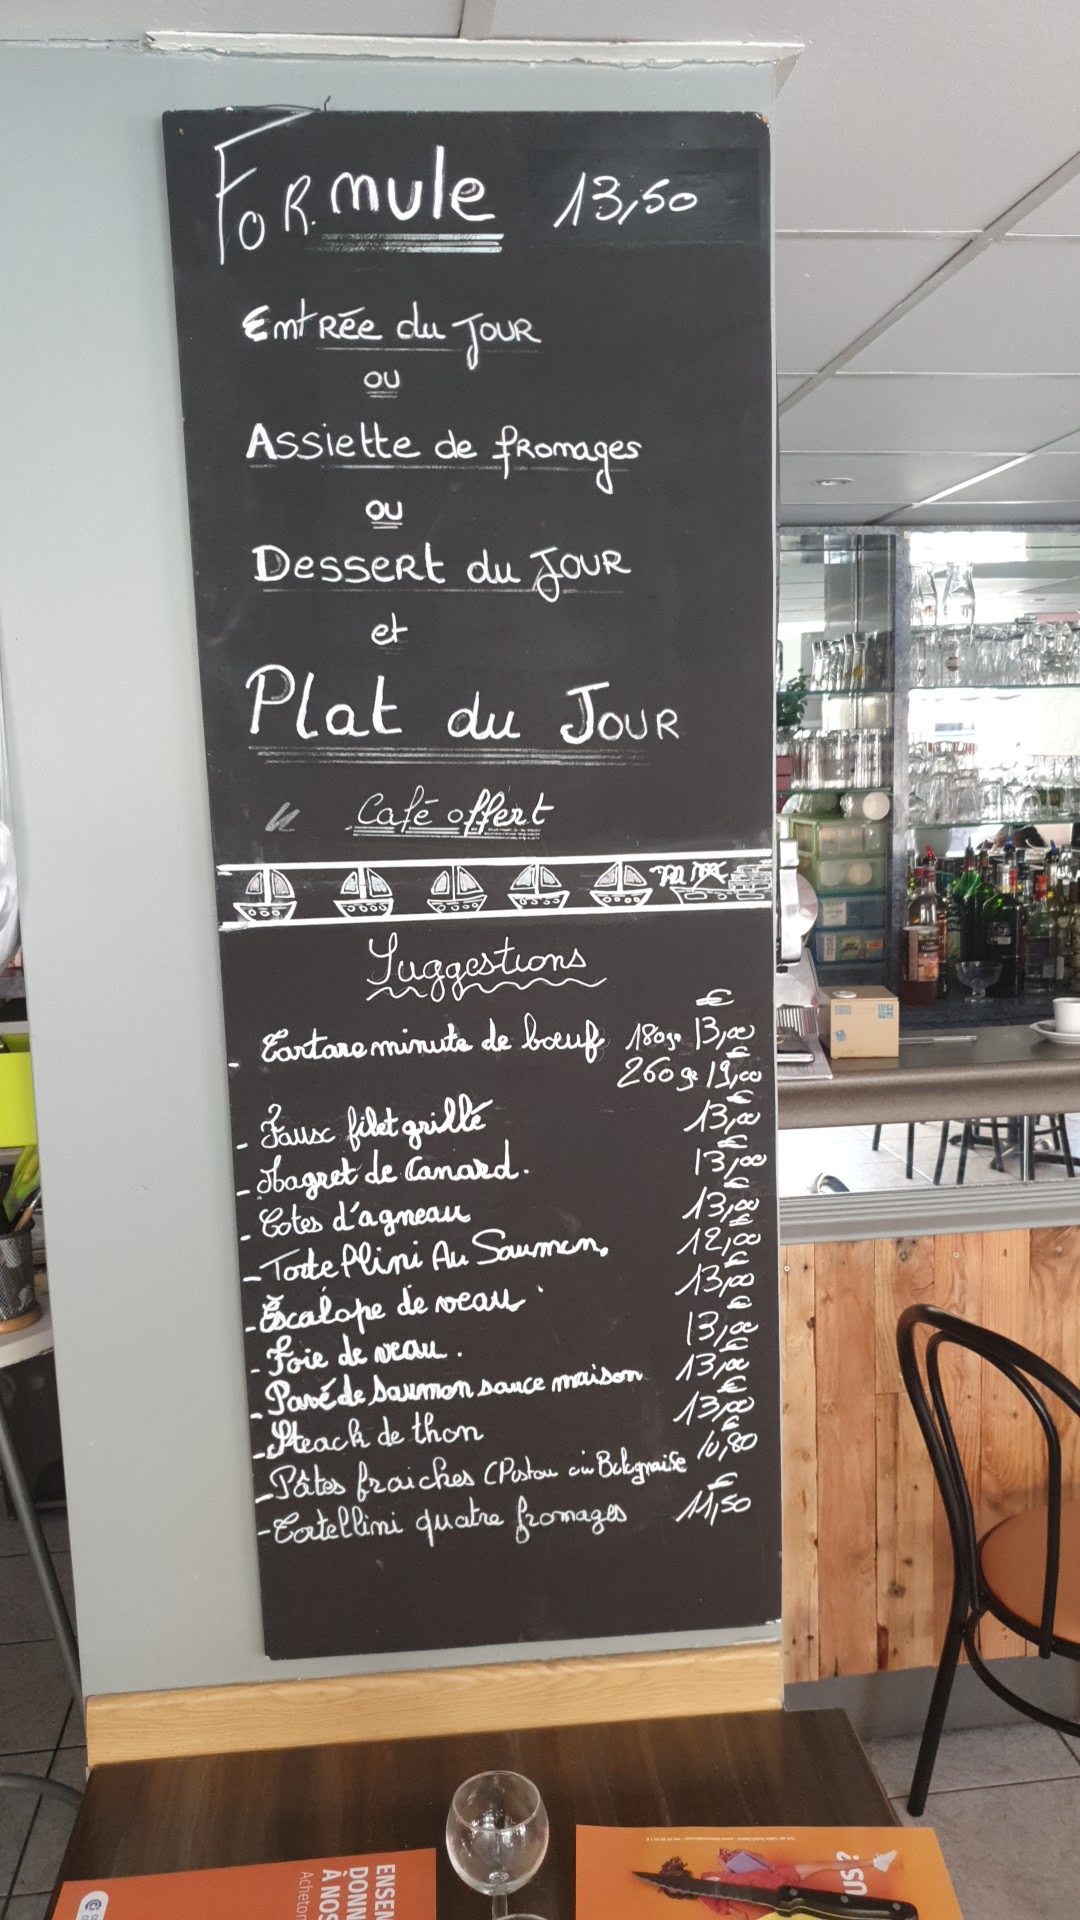 FORmule 13,50
Entrée du JOUR
ou
Assiette de fromages
ou
Dessert du JOUR
et
Plat du JOUR
Café offert
Suggestions
€
- Tartare minute de bœuf 180gr 13,00
€
260gr 19,00
€
- Faux filet grillé 13,00
€
- Magret de Canard. 13,00
€
- Cotes d'agneau 13,00
€
- Torte Plini Au Saumon. 12,00
€
- Escalope de veau 13,00
€
- Foie de veau. 13,00
€
- Pavé de Saumon sauce maison 13,00
€
- Steack de thon 13,00
€
- Pâtes fraiches (Pistou ou Bolognaise 10,80
€
- Tortellini quatre fromages 11,50
ENSEM
DONN
À NOS
Acheton
US ?